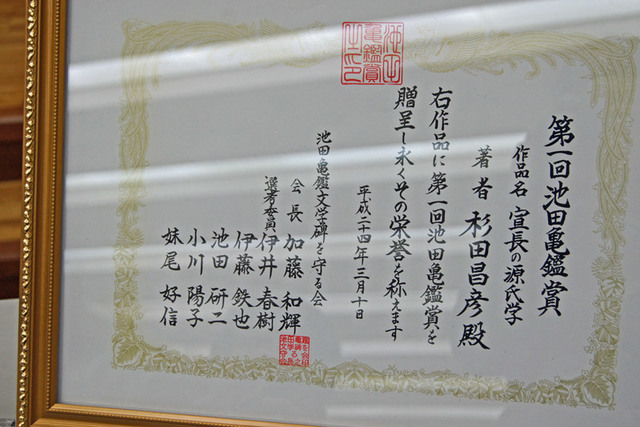 第一回池田亀鑑賞
作品名 宣長の源氏学
著者 杉田昌彦殿
右作品に第一回池田亀鑑賞を
贈呈し永くその栄誉を称えます
平成二十四年三月十日
池田亀鑑文学碑を守る会
会長 加藤 和輝
選考委員 伊井 春樹
伊藤 鉄也
池田 研二
小川 陽子
妹尾 好信
池田
亀鑑賞
之印